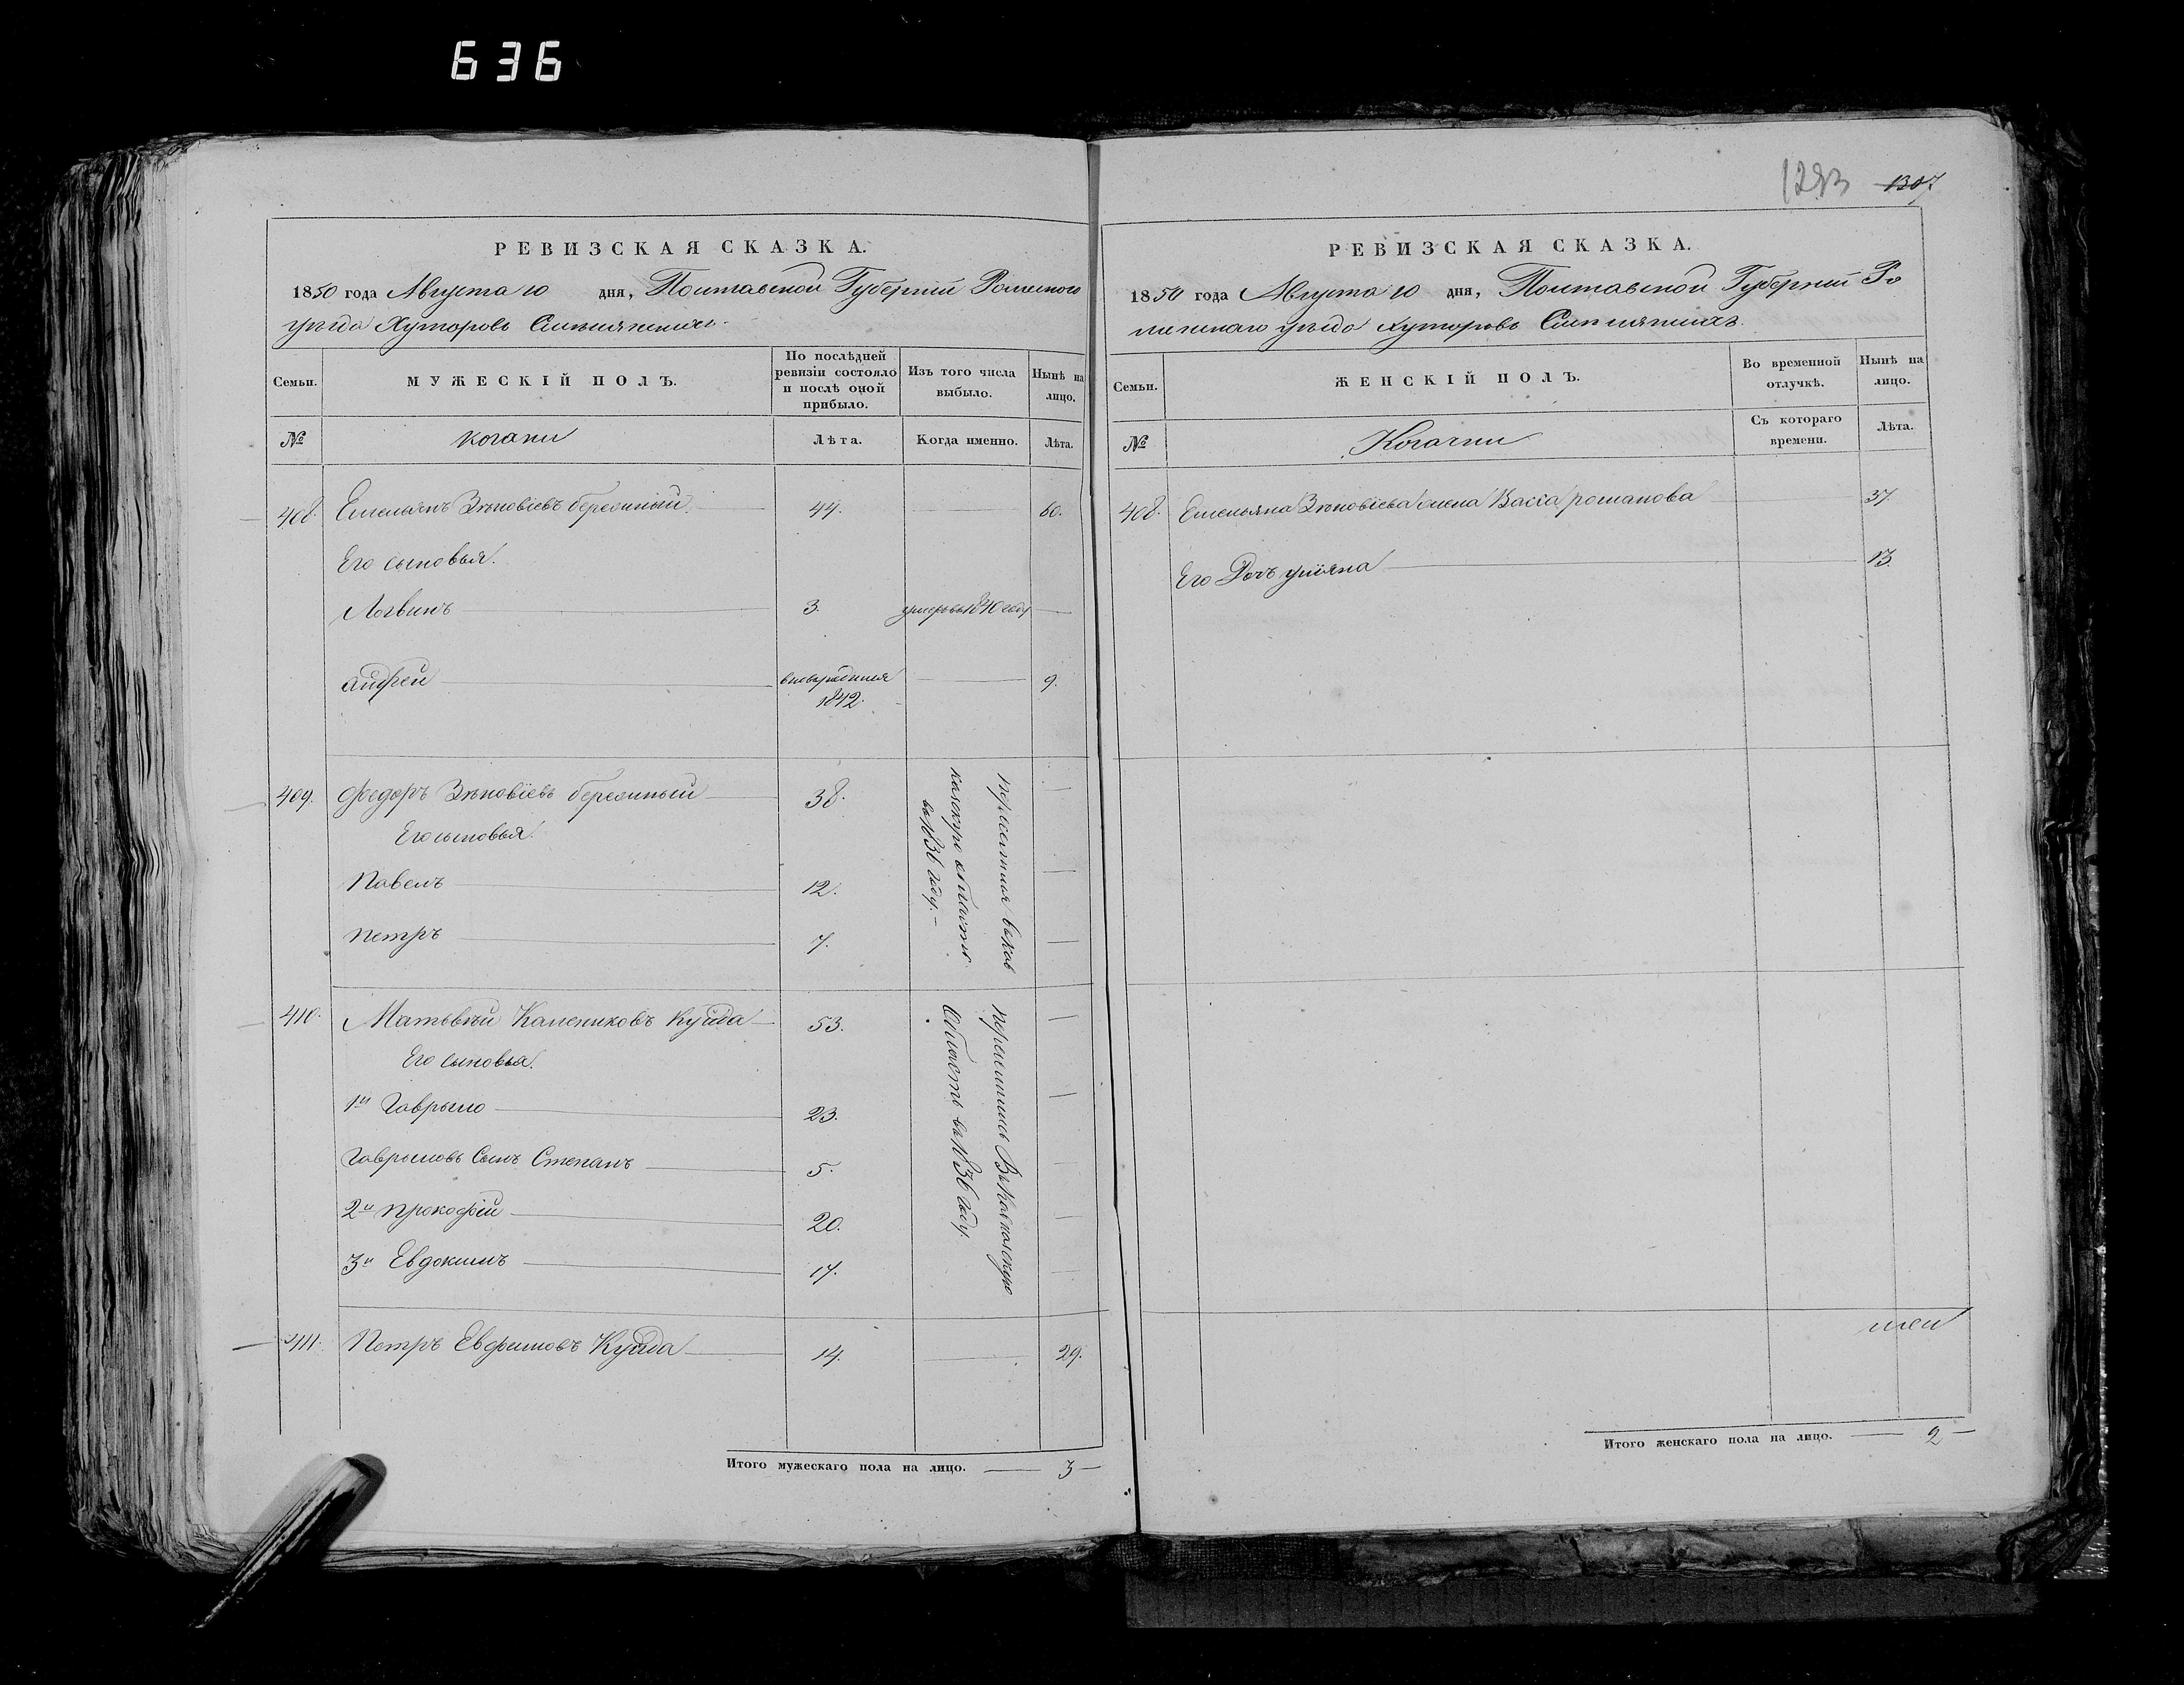 636
РЕВИЗСКАЯ СКАЗКА.
1850 года Августа 10 дня, Полтавской Губерніи Роменского
уѣзда Хуторовъ
Семьи.
МУЖЕСКІЙ ПОЛЪ.
По послѣдней ревизіи состояло и послѣ оной прибыло.
Изъ того числа выбыло.
Нынѣ на лицо.
№
козаки
Лѣта.
Когда именно.
Лѣта.
408. Емельянъ Зѣновіевъ 44. 60.
Его сыновья.
Логвинъ 3. умеръ въ 1840 году
андрей 1842. 9.
409. Федоръ Зѣновіевъ 38.
Его сыновья.
Павелъ 12.
петръ 7.
въ 1836 году.
410. Матвѣй Калениковъ Куйда 53.
Его сыновья.
1й Гаврыло 23.
Гавриловъ Сынъ Степанъ 5.
2й прокофій 20.
3й Евдокимъ 17.
Переселились В Кавказскую
Область въ 1836 году.
411. Петръ Евфимовъ Куйда 14. 29.
Итого мужескаго пола на лицо. 3
1307
РЕВИЗСКАЯ СКАЗКА.
1850 года Августа 10 дня, Полтавской Губерніи Ро
менскаго уѣзда хуторовъ
Семьи.
ЖЕНСКІЙ ПОЛЪ.
Во временной отлучкѣ.
Нынѣ на лицо.
№
Козачки
Съ котораго времени.
Лѣта.
408. Емельяна Зѣновіева жена Васса романова 37.
Его Дочъ уліяна 13.
Итого женскаго пола на лицо. 2